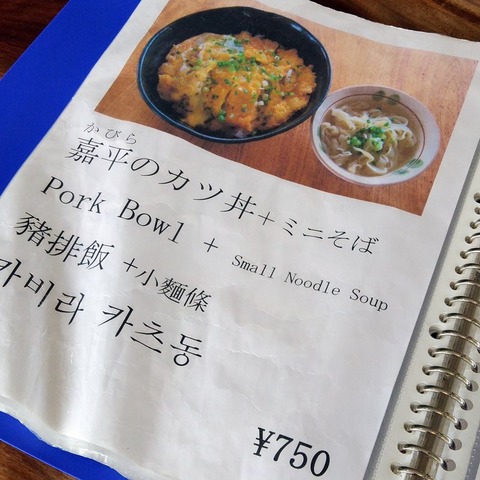 かびら
嘉平のカツ丼+ミニそば
Pork Bowl + Small Noodle Soup
豬排飯+小麵條
카비라 카츠동
¥750